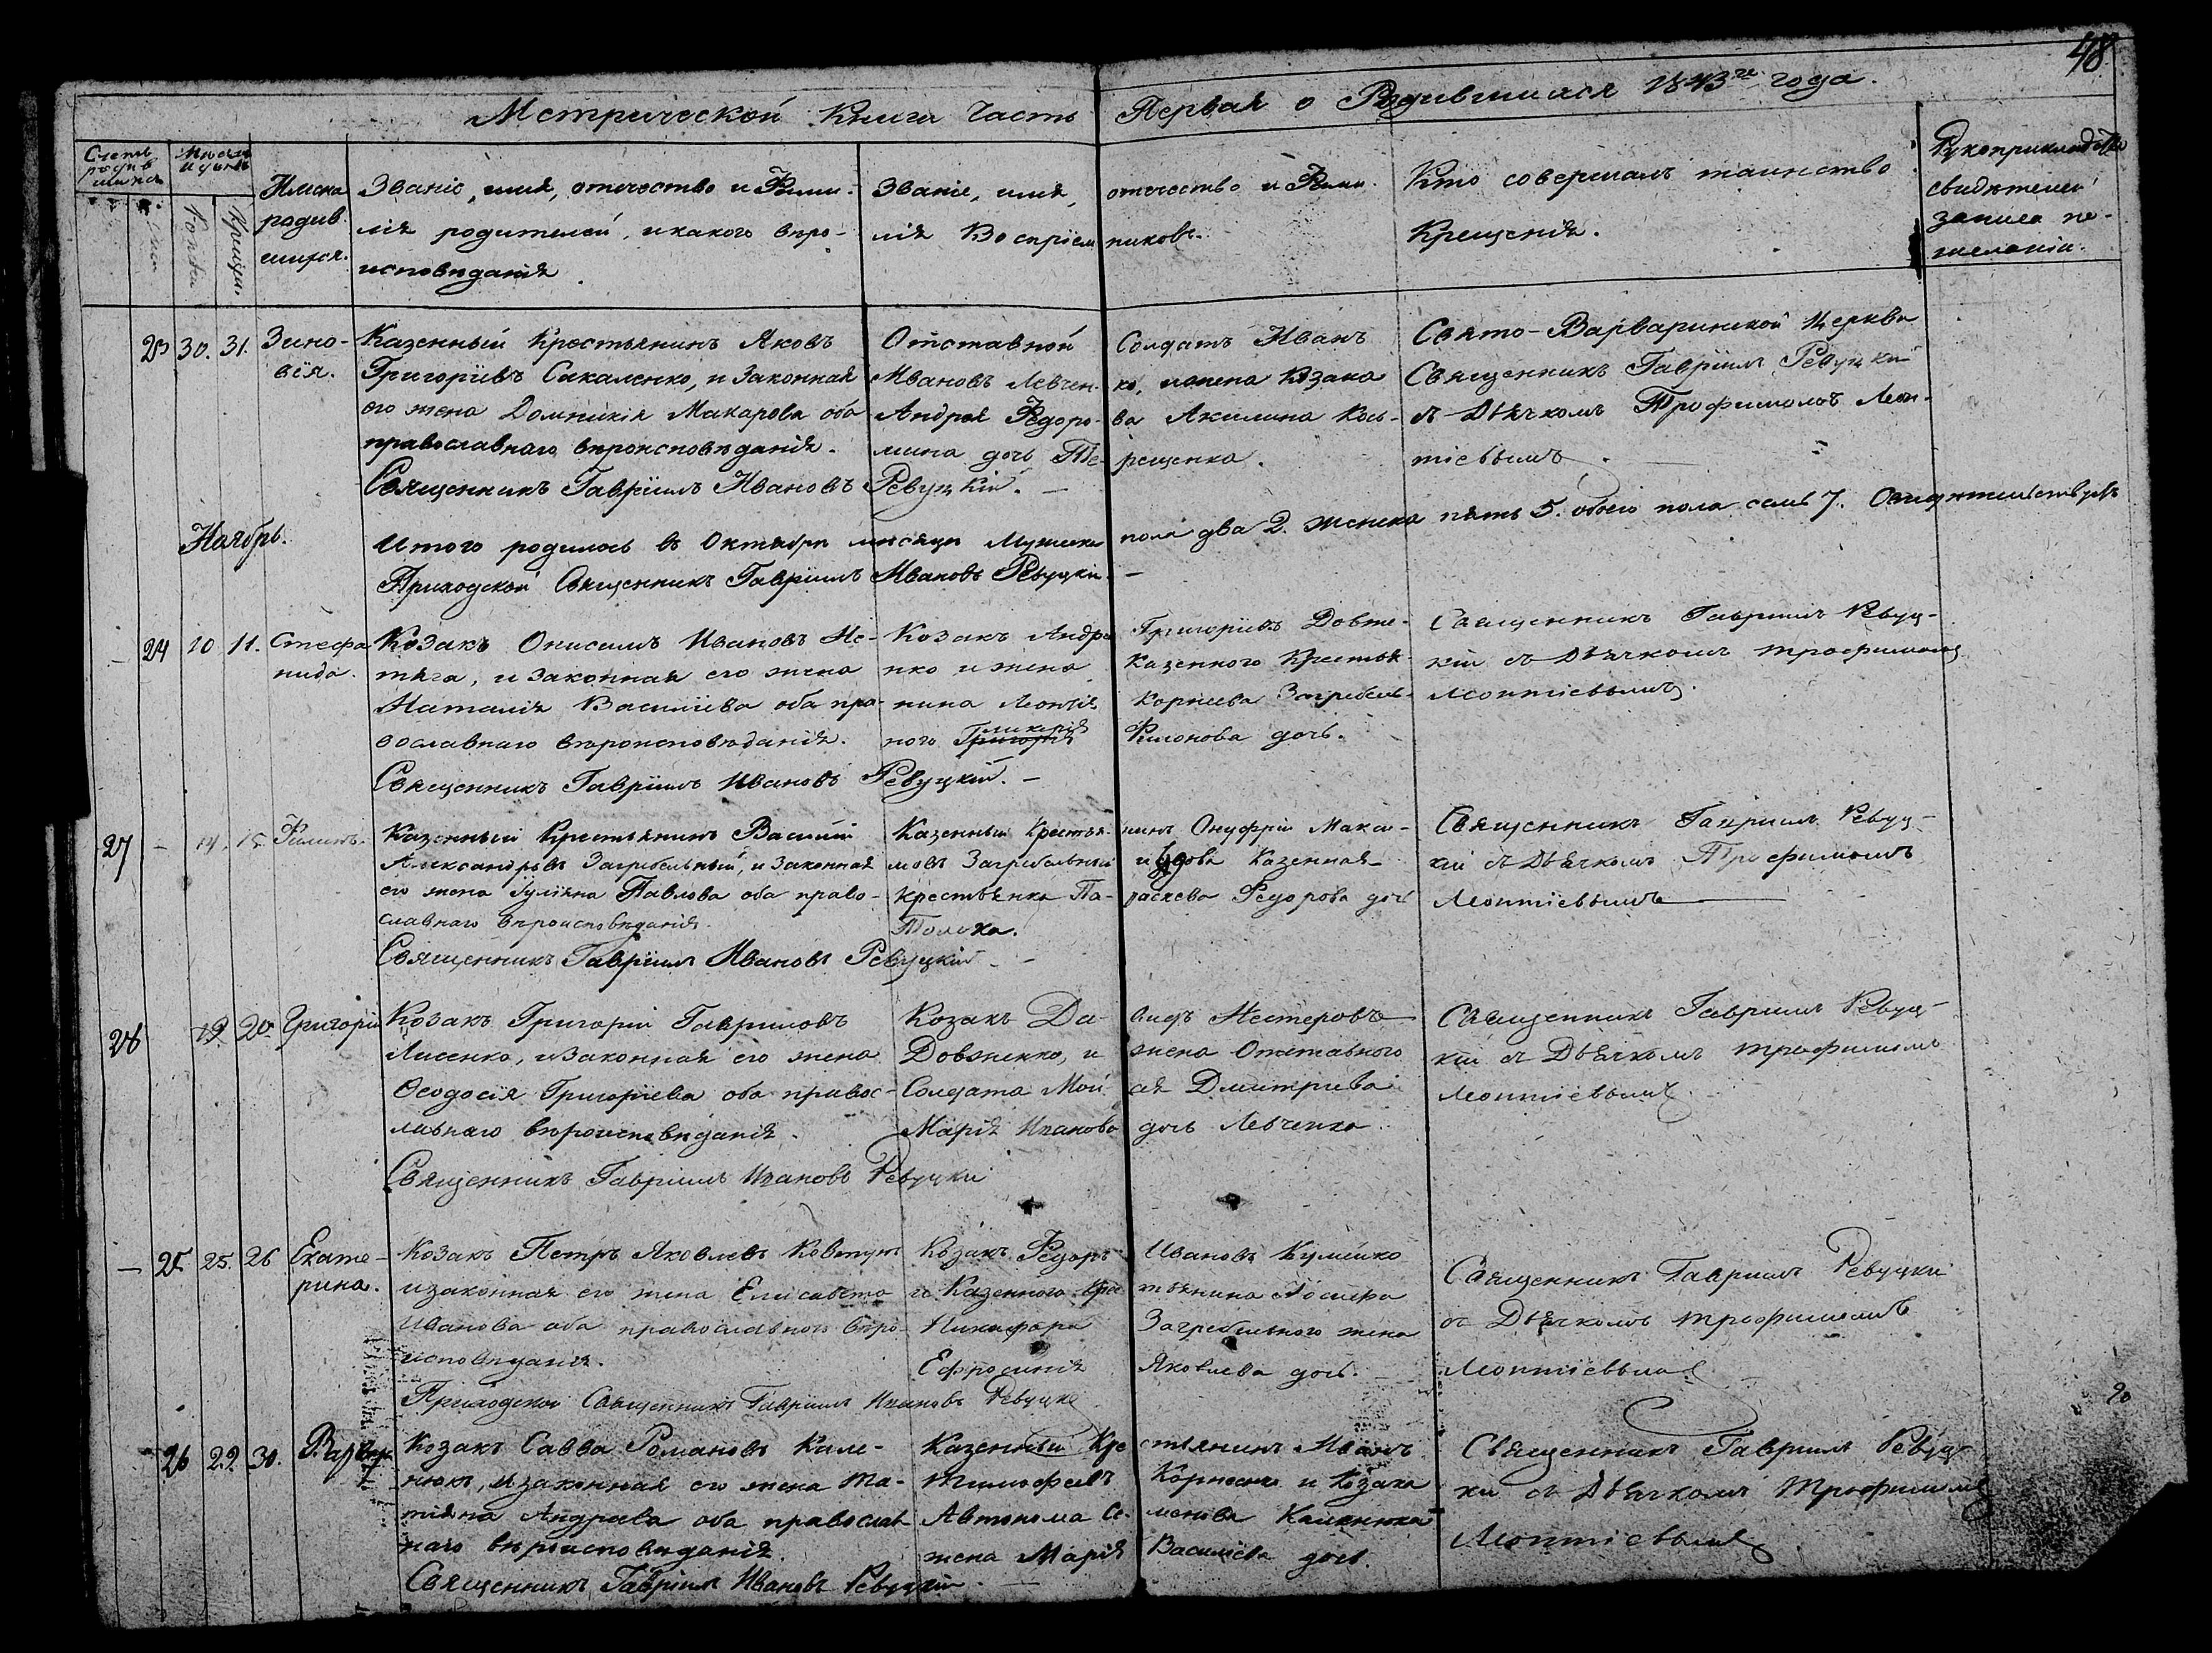 48
Метрической Книги Часть Первая о Родившихся 1843го года.
Счетъ родившихся
Мѣсяцъ и день
Рожден.
Крещен.
Имена родившихся.
Званіе, имя, отчество и Фами-
лія родителей, и какого вѣро-
исповѣданія.
Званіе, имя, отчество и Фами-
лія Воспріемниковъ.
Кто совершалъ таинство
Крещенія.
Рукоприкладство
свидѣтелей
записа по
желанію.
23 30. 31. Зино-
вія.
Казенный Крестьянинъ Яковъ
Григоріевъ Сакаленко, и законная
его жена Домникія Макарова оба
православнаго вѣроисповѣданія.
Священникъ Гавріилъ Ивановъ Ревуцкій.
Отставной Солдатъ Иванъ
Ивановъ Левчен-ко, и жена Козака
Андрея Федоро-ва Акилина Кось-
мина дочь Те-рещенка.
Свято-Варваринской Церкви
Священникъ Гавріилъ Ревуцкій
съ Дьячкомъ Трофимомъ Леон-
тіевымъ.
Ноябрь.
Итого родилось въ Октябрѣ мѣсяцѣ Мужеска пола два 2. женска пять 5. обоего пола семь 7. Свидѣтельствуетъ
Приходской Священникъ Гавріилъ Ивановъ Ревуцкій.
24 10 11. Стефа
нида.
Козакъ Онисимъ Ивановъ Не-
тяга, и законная его жена
Наталія Василіева оба пра-
вославнаго вѣроисповѣданія.
Священникъ Гавріилъ Ивановъ Ревуцкій.
Козакъ Андрей Григоріевъ Довже-
нко и жена Казеннаго Крестья-
нина Леонтія Корнеева Загребель-
ного Григорія ликерія Филонова дочь.
Священникъ Гавріилъ Ревуц-
кій съ Дьячкомъ Трофимомъ
Леонтіевымъ.
27 14. 15. Филипъ.
Казенный Крестьянинъ Василій
Александровъ Загребельный, и законная
его жена Іуліяна Павлова оба право-
славнаго вѣроисповѣданія.
Священникъ Гавріилъ Ивановъ Ревуцкій
Казенный Крестья-нинъ Онуфрій Макси-
мовъ Загребельный и вдова Казенная
крестьянка Па-раскева Федорова дочь
Священникъ Гавріилъ Ревуц-
кій съ Дьячкомъ Трофимомъ
Леонтіевымъ
28 19 20 Григорій
Козакъ Григорій Гавриловъ
Лисенко, и законная его жена
Феодосія Григоріева оба правос-
лавнаго вѣроисповѣданія.
Священникъ Гавріилъ Ивановъ Ревуцкій
Козакъ Да-видъ Нестеровъ
Довженко, и жена Отставного
Солдата Мои-сея Дмитріева
Марія Иванова дочь Левченка.
Священникъ Гавріилъ Ревуц-
кій съ Дьячкомъ Трофимомъ
Леонтіевымъ
25 25. 26 Екате-
рина.
Козакъ Петръ Яковлевъ Ковтунъ
и законная его жена Елисавета
Иванова оба православного вѣро-
исповѣданія.
Приходской Священникъ Гавріилъ Ивановъ Ревуцкій
Козакъ Федоръ Ивановъ
и Казенного Кре-стьянина Іосифа
Никифора Загребельного жена
Ефросинія Яковлева дочь.
Священникъ Гавріилъ Ревуцкій
съ Дьячкомъ Трофимомъ
Леонтіевымъ.
26 29. 30. Варвара
Козакъ Савва Романовъ Кале-
нюкъ, и законная его жена Та-
тіяна Андреева оба православ-
наго вѣроисповѣданія.
Священникъ Гавріилъ Ивановъ Ревуцкій
Казенный Кре-стьянинъ Иванъ
Тимофеевъ и Козака
Автонома Се-менова Каленюка
жена Марія Василіева дочь.
Священникъ Гавріилъ Ревуц-
кій съ Дьячкомъ Трофимомъ
Леонтіевымъ